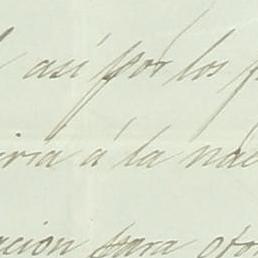 así por los
iria á la nac
acion para oto